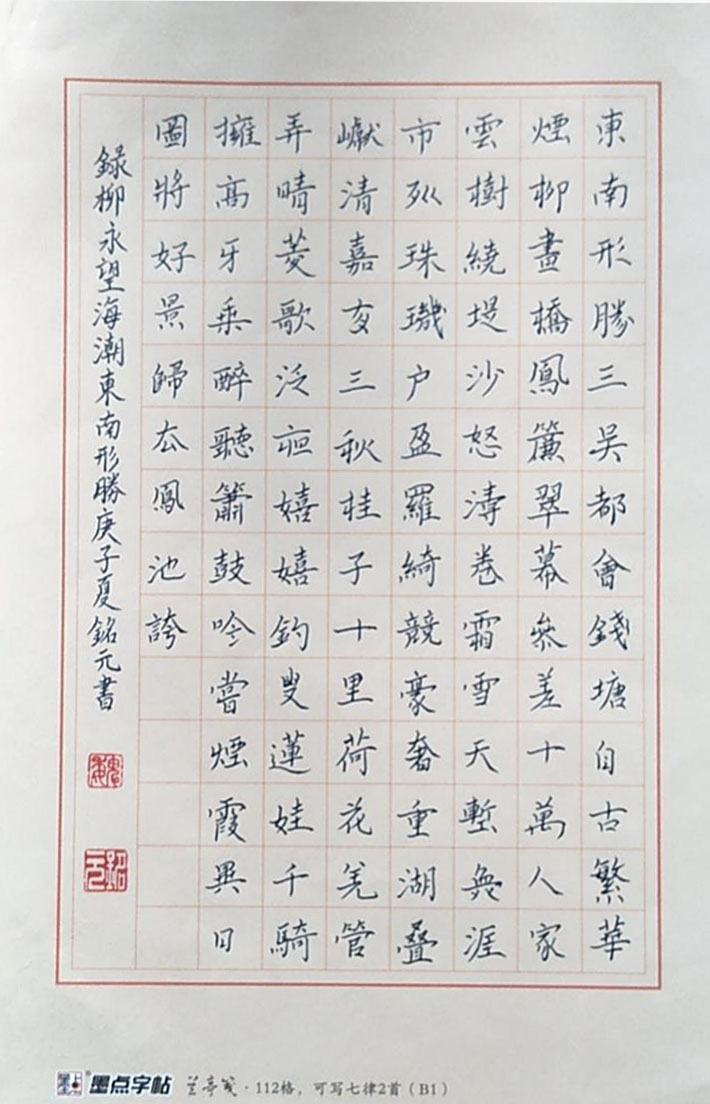 東南形勝三吳都會錢塘自古繁華
煙柳畫橋鳳簾翠幕參差十萬人家
雲樹繞堤沙怒濤卷霜雪天塹無涯
市列珠璣户盈羅綺競豪奢重湖叠
巘清嘉有三秋桂子十里荷花羌管
弄晴菱歌泛夜嬉嬉釣叟蓮娃千騎
擁高牙乘醉聽簫鼓吟嘗煙霞異日
圖將好景歸去鳳池誇
録柳永望海潮東南形勝庚子夏銘元書
銘元
墨点字帖 兰亭笺·112格，可写七律2首（B1）